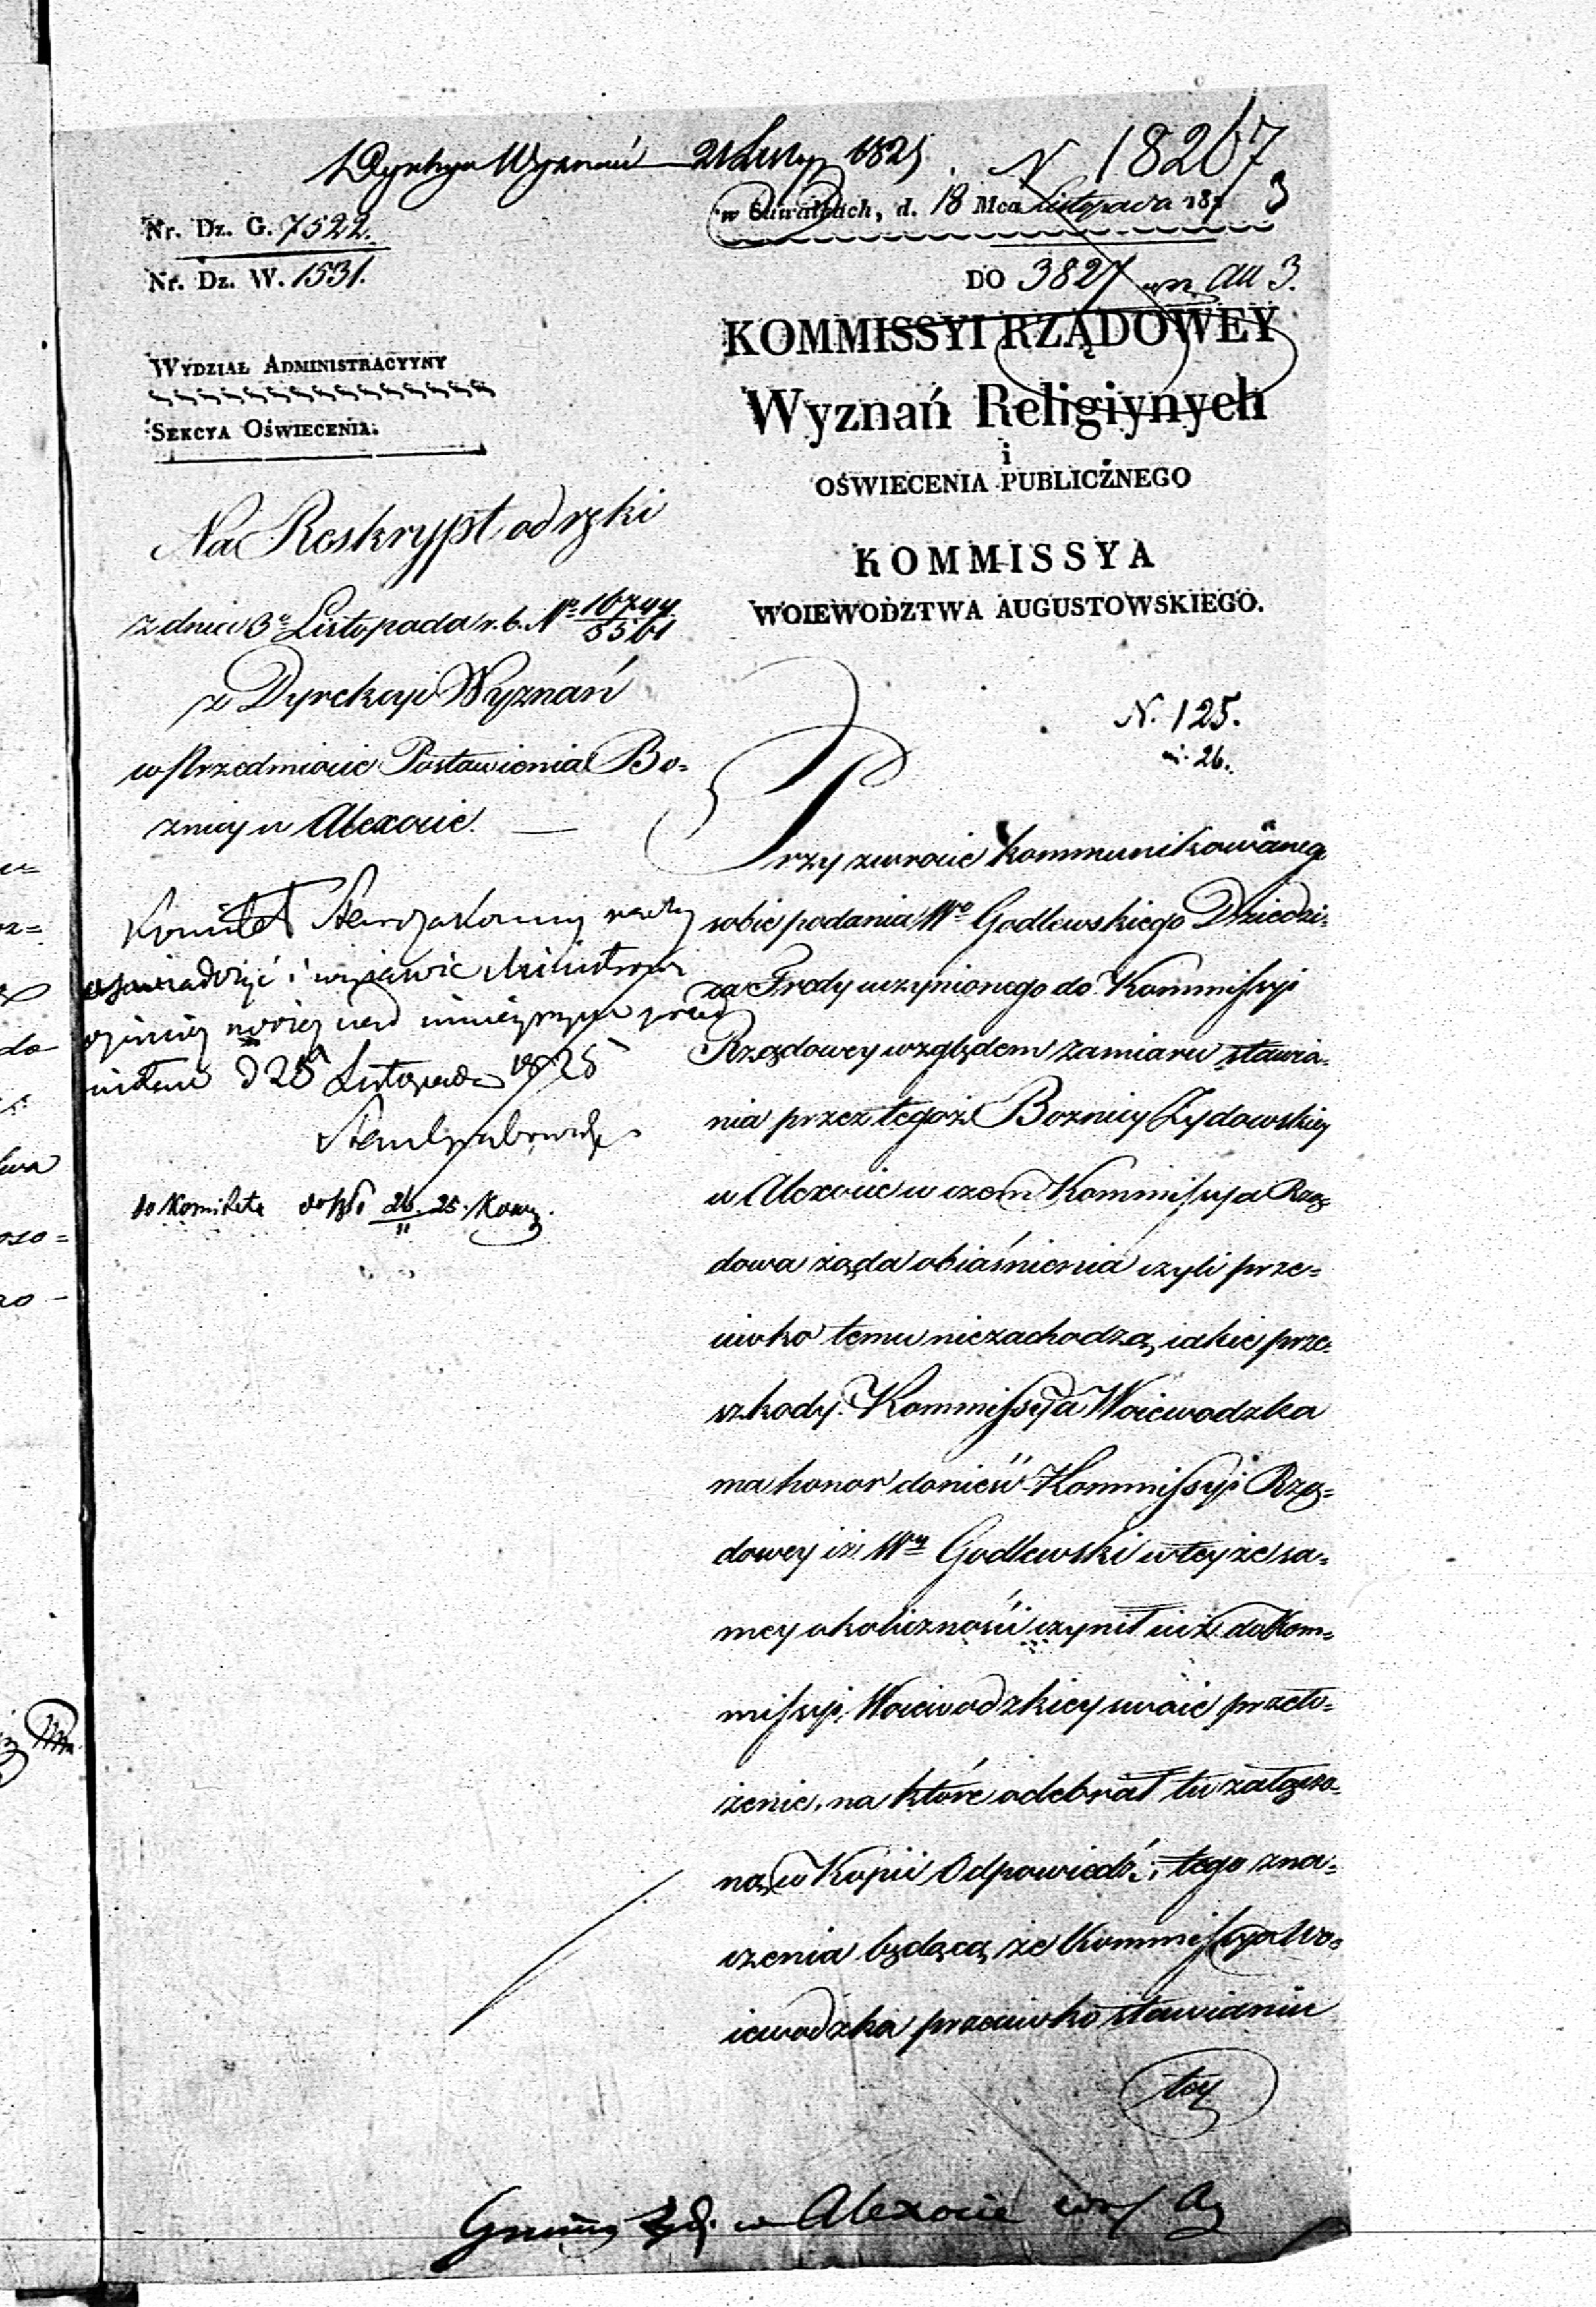 Dyrkcya Wyznań 21 Listop 1825. N 18267
w Suwałkach, d. 18 Mca Listopada 18
3
Nr. Dz. G. 7522.
Nr. Dz. W. 1531.
DO 3827
KOMMISSYI RZĄDOWEY
Wyznań Religiynych
i
OŚWIECENIA PUBLICZNEGO
KOMMISSYA
WOIEWODZTWA AUGUSTOWSKIEGO.
WYDZIAŁ ADMINISTRACYYNY
SEKCYA OŚWIECENIA.
Na Reskrypt
z dnia 3o Listopada r. b. No 16744/5561
z Dyrekcyi Wyznań
w Przedmiocie Postawienia Bo=
znicy w Alexocie.
Komitet Starozakonny raczy
i wyjawić
opinią
d 25 Listopada 1825
do Komitetu doszło 26/11 25.
N. 125.
26.
Przy zwrocie kommunikowanego
sobie podania Wo Godlewskiego Dziedzi=
ca Fredy uczynionego do Kommissyi
Rządowey względem zamiaru stawia=
nia przez tegoż Boznicy Żydowskiey
w Alexocie w czem Kommissya Rzą=
dowa żąda obiaśnienia czyli prze=
ciwko temu niezachodzą iakie prze=
szkody. Kommissya Woiewodzka
ma honor donieść Kommissyi Rzą=
dowey iż Wny Godlewski w teyże sa=
mey okoliczności czynił iuż do Kom=
missyi Woiewodzkiey swoie przeło=
żenie, na które odebrał tu załączo=
ną w Kopii Odpowiedź, tego zna=
czenia będącą, że Kommissya Wo=
iewodzka przeciwko stawianiu
tey
Gminy Żyd. w Alexocie